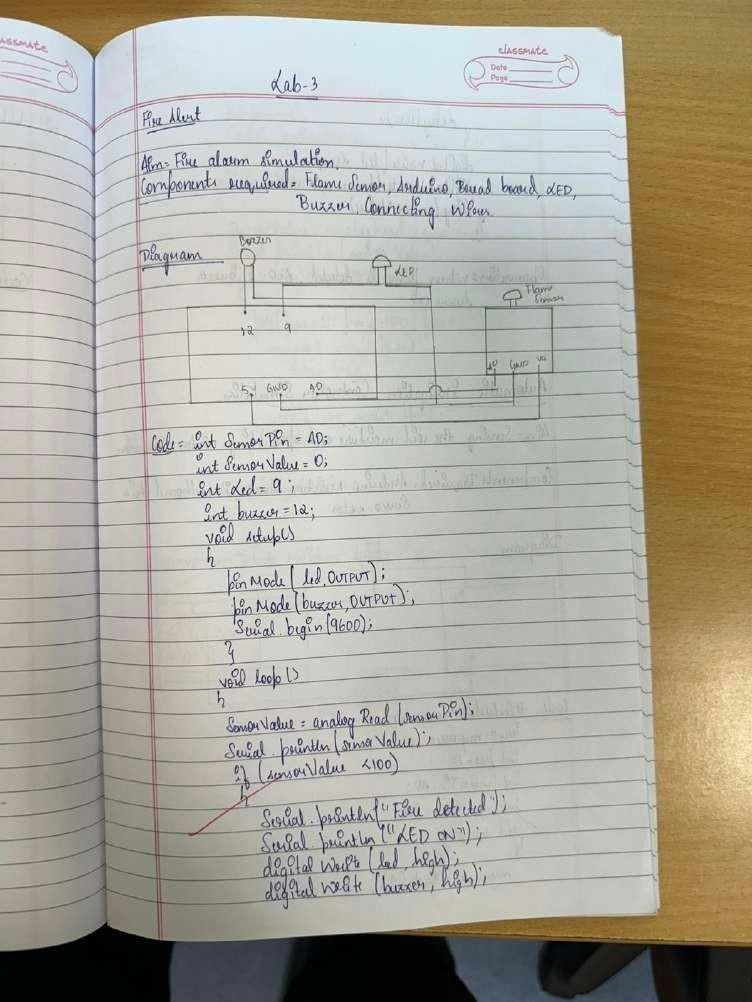 classmate
classmate
Date
Page
Lab-3
Fire Alert
Aim = Fire alarm simulation.
Components required = Flame Sensor, Arduino, Bread board, LED,
Buzzer, Connecting Wires
Diagram
Buzzer
LED
Flame
Sensor
12 9
A0 GND Vcc
5V GND A0
Code = int SensorPin = A0;
int SensorValue = 0;
int Led = 9;
int buzzer = 12;
void setup()
{
pinMode (led, OUTPUT);
pinMode (buzzer, OUTPUT);
Serial. begin (9600);
}
void loop()
{
SensorValue = analog Read (sensorPin);
Serial. println (sensorValue);
if (sensorValue <100)
{
Serial. println ("Fire detected");
Serial. println ("LED ON");
digital Write (led, high);
digital Write (buzzer, high);